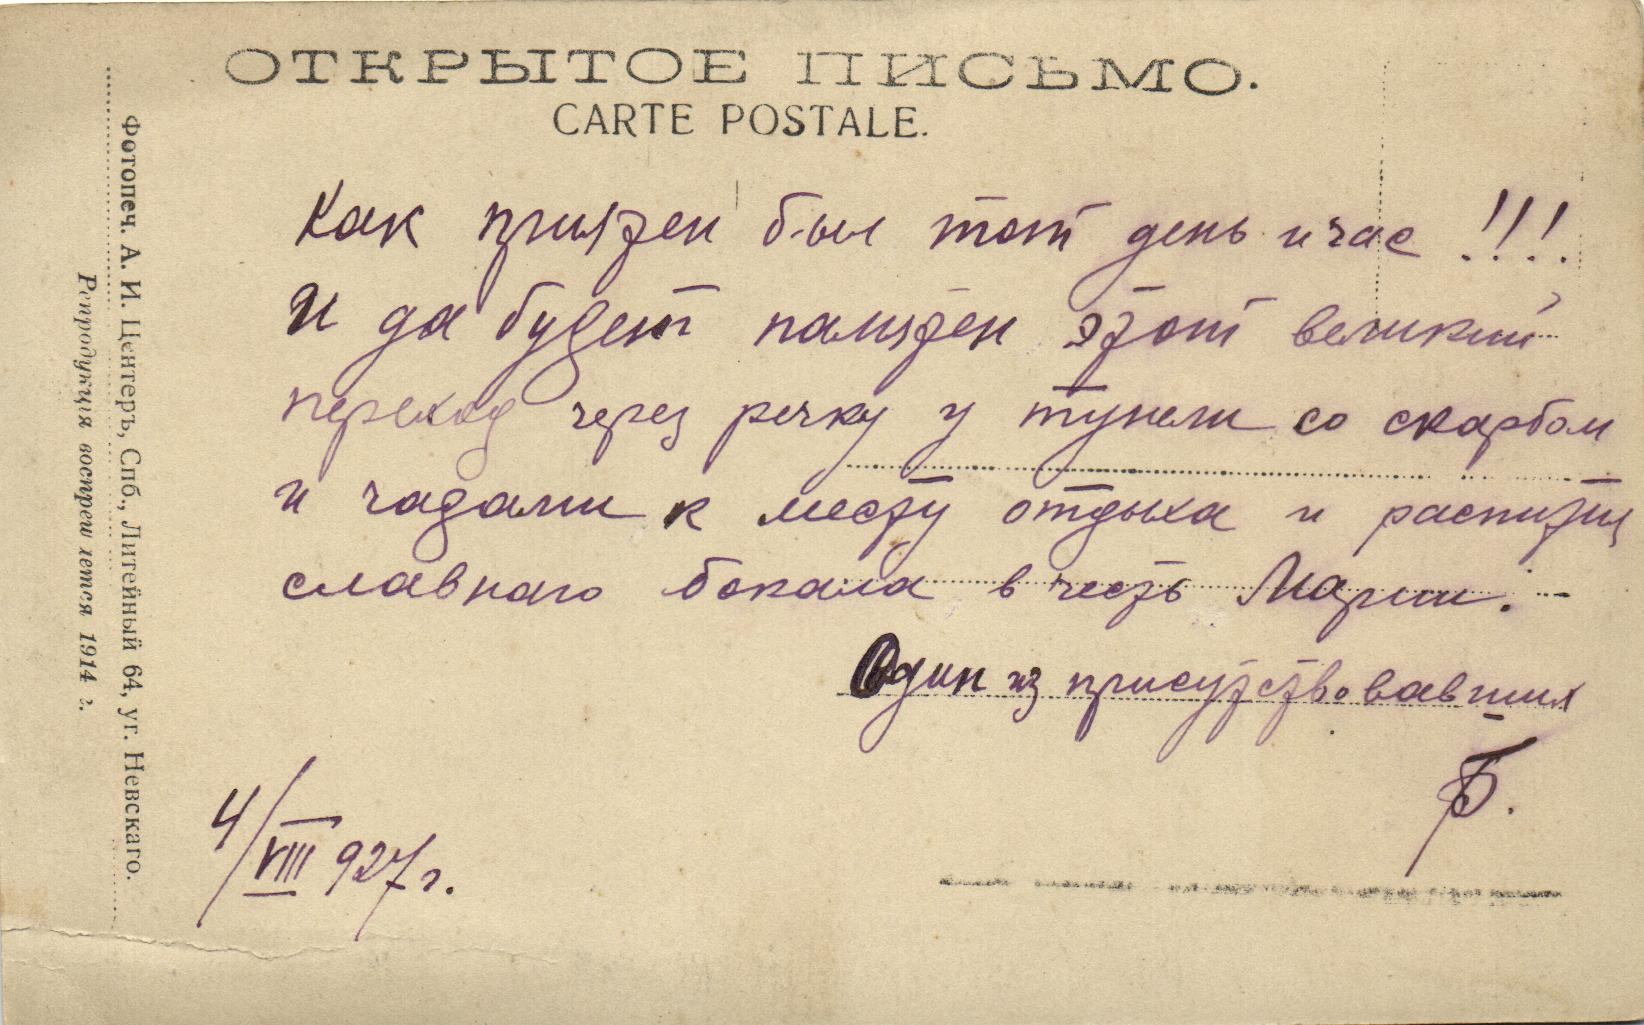 ОТКРЫТОЕ ПИСЬМО.
CARTE POSTALE.
Как приятен был тот день и час !!!
И да будет памятен этот великий
переход через речку у тунели со скарбом
и чадами к месту отдыха и распития
славнаго бокала в честь Марии.
Один из присутствовавших
Б.
4/VIII 927 г.
Фотопеч. А. И. Центеръ, Спб., Литейный 64, уг. Невскаго.
Репродукцiя воспрещается 1914 г.